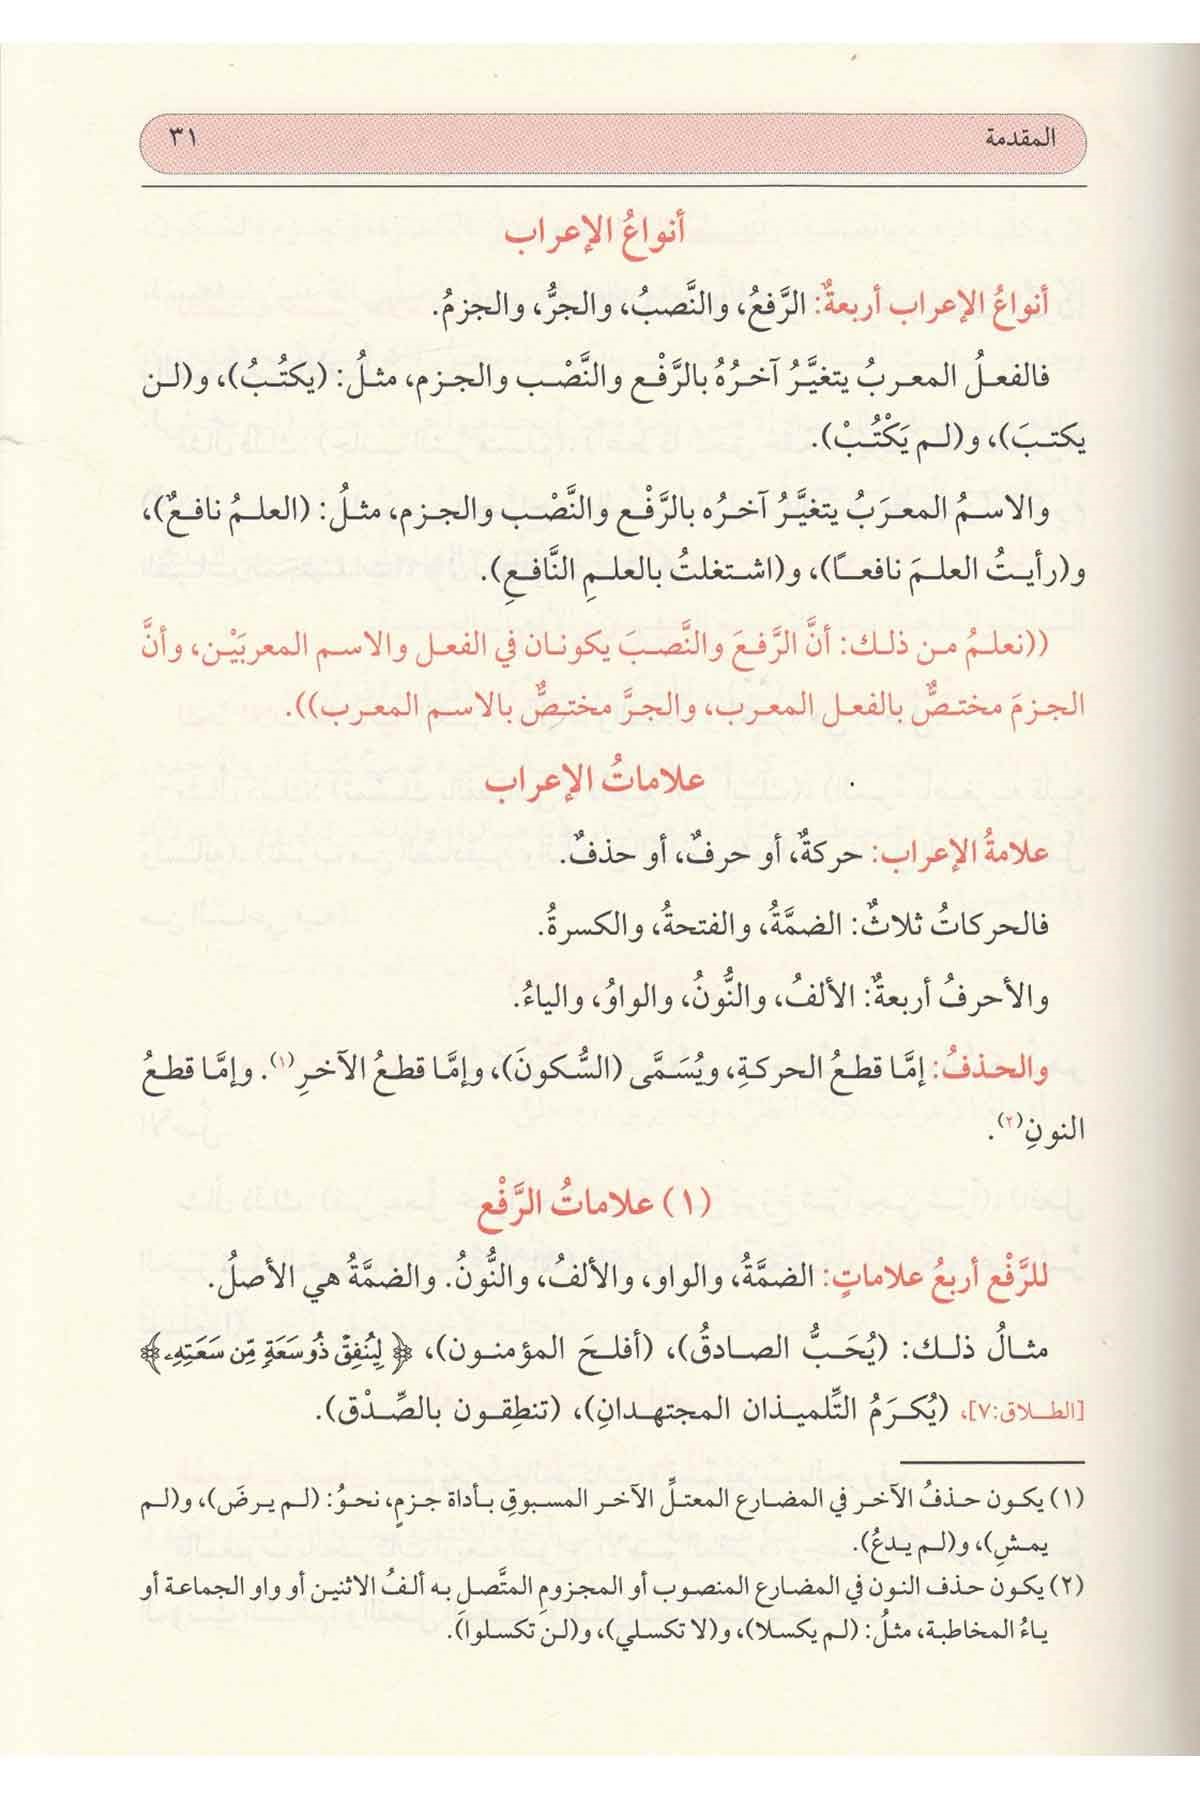 المقدمة ٣١
أنواعُ الإعراب
أنواعُ الإعراب أربعةٌ: الرَّفعُ، والنَّصبُ، والجرُّ، والجزمُ.
فالفعلُ المعربُ يتغيَّرُ آخرُهُ بالرَّفْع والنَّصْب والجزم، مثلُ: (يكتُبُ)، و(لن
يكتبَ)، و(لم يَكْتُبْ).
والاسمُ المعرَبُ يتغيَّرُ آخرُه بالرَّفْع والنَّصْب والجزم، مثلُ: (العلمُ نافعٌ)،
و(رأيتُ العلمَ نافعاً)، و(اشتغلتُ بالعلمِ النَّافعِ).
((نعلمُ من ذلك: أنَّ الرَّفعَ والنَّصبَ يكونان في الفعل والاسم المعربَيْن، وأنَّ
الجزمَ مختصٌّ بالفعل المعرب، والجرَّ مختصٌّ بالاسم المعرب)).
علاماتُ الإعراب
علامةُ الإعراب: حركةٌ، أو حرفٌ، أو حذفٌ.
فالحركاتُ ثلاثٌ: الضمَّةُ، والفتحةُ، والكسرةُ.
والأحرفُ أربعةٌ: الألفُ، والنُّونُ، والواوُ، والياءُ.
والحذفُ: إمَّا قطعُ الحركةِ، ويُسَمَّى (السُّكونَ)، وإمَّا قطعُ الآخرِ(١). وإمَّا قطعُ
النونِ(٢).
(١) علاماتُ الرَّفْع
للرَّفْع أربعُ علاماتٍ: الضمَّةُ، والواو، والألفُ، والنُّونُ. والضمَّةُ هي الأصلُ.
مثالُ ذلك: (يُحَبُّ الصادقُ)، (أفلحَ المؤمنون)، ﴿لِيُنفِقْ ذُو سَعَةٍ مِّن سَعَتِهِۦ﴾
[الطلاق:٧]، (يُكرَمُ التِّلميذان المجتهدانِ)، (تنطِقون بالصِّدْق).
(١) يكون حذفُ الآخر في المضارع المعتلِّ الآخر المسبوقِ بأداة جزمٍ، نحوُ: (لم يرضَ)، و(لم
يمشِ)، و(لم يدعُ).
(٢) يكون حذف النون في المضارع المنصوب أو المجزومِ المتَّصل به ألفُ الاثنين أو واو الجماعة أو
ياءُ المخاطبة، مثلُ: (لم يكسلا)، و(لا تكسلي)، و(لن تكسلوا).